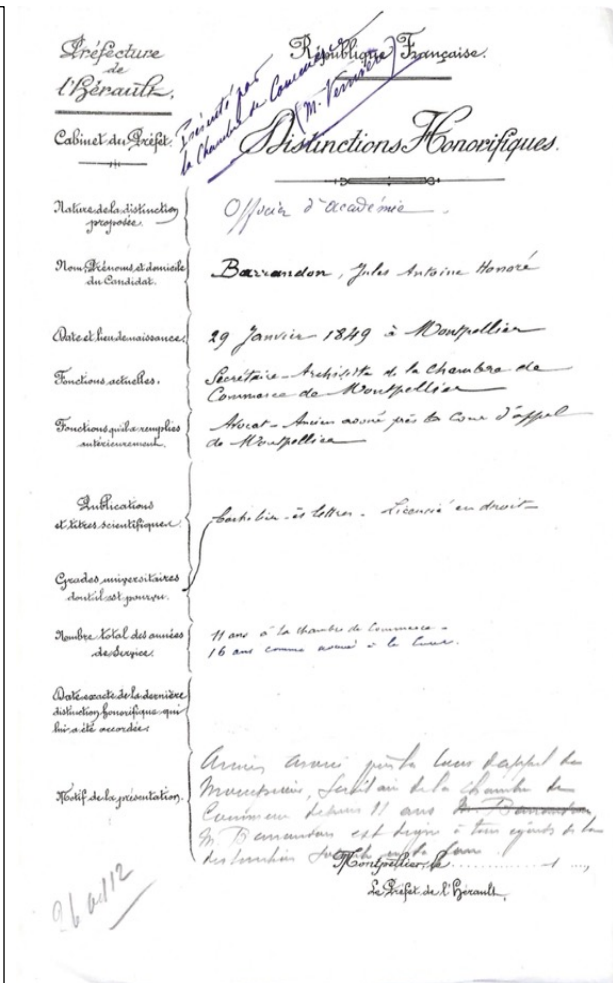 Préfecture
de
l'Hérault.
Cabinet du Préfet.
Présenté par
la Chambre de Commerce
République Française.
Distinctions Honorifiques.
Nature de la distinction
proposée.
Officier d'académie
Nom, Prénoms, et domicile
du Candidat.
Barrandon, Jules Antoine Honoré
Date et lieu de naissance.
29 Janvier 1849 à Montpellier
Fonctions actuelles.
Secrétaire-Archiviste de la Chambre de
Commerce de Montpellier
Fonctions qu'il a remplies
antérieurement.
Avocat - Ancien avoué près la Cour d'appel
de Montpellier
Publications
et titres scientifiques.
Bachelier-ès lettres - Licencié en droit
Grades universitaires
dont il est pourvu.
Nombre total des années
de Service.
11 ans à la chambre de Commerce -
16 ans comme avoué à la Cour.
Date exacte de la dernière
distinction honorifique qui
lui a été accordée.
Motif de la présentation.
Ancien avoué près la Cour d'appel de
Montpellier, Secrétaire de la Chambre de
Commerce depuis 11 ans M. Barrandon
M. Barrandon est digne à tous égards de la
distinction
Montpellier, le 1
Le Préfet de l'Hérault,